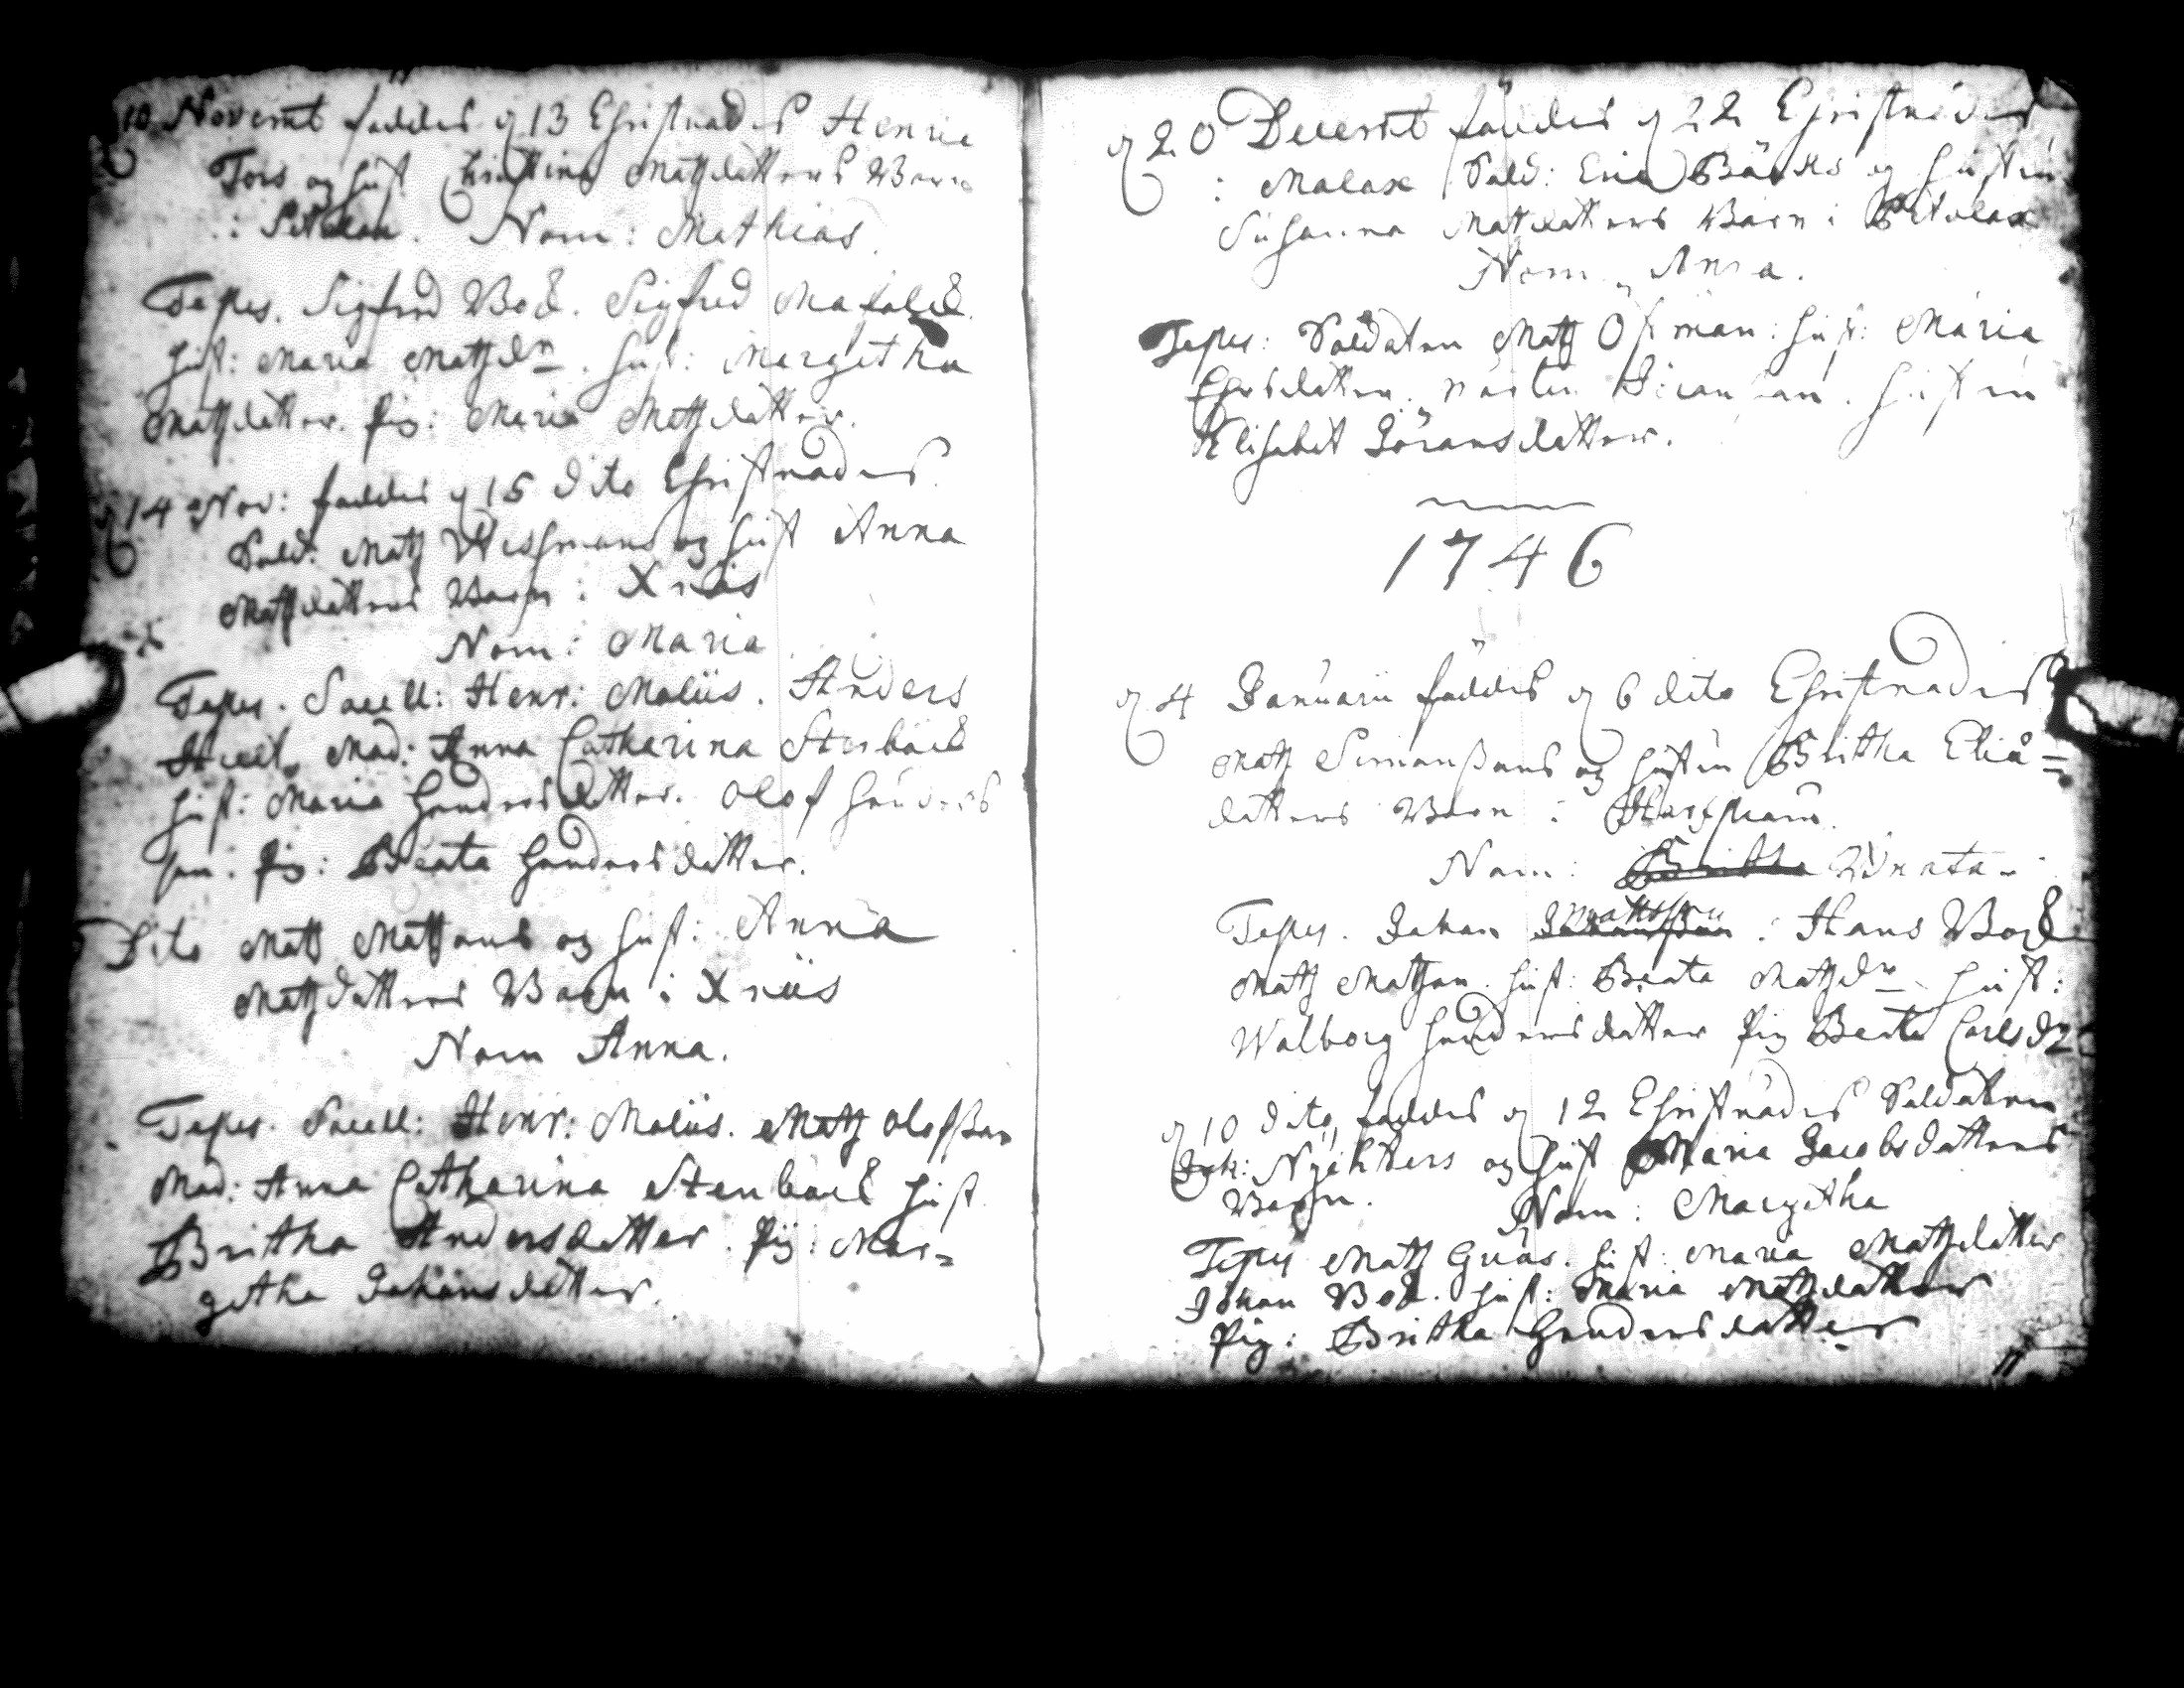 10 Novemb föddes och 13 Christnades Henric
Tors og hust Christina Matzdotters Barn
i Petalax. Nom: Mathias.
Testes. Sigfred Bock. Sigfred
hust: Maria Matzdr. hust: Margetha
Matzdotter. Pig: Maria Matzdotter.
14 Nov: föddes och 15 dito Christnades
Sold: Matz og hust Anna
Matzdotters Barn i Xnäs
Nom: Maria
Testes. Sacell: Henr: Moliis. Anders
Mad: Anna Catharina Stenbäck
hust: Maria Hendersdotter. Olof Henders
son. Pig: Beata Hendersdotter.
Dito Matz Matzons og hust: Anna
Matzdotters Barn i Xnäs
Nom Anna.
Testes. Sacell: Henr: Moliis. Matz Olofsson
Mad: Anna Catharina Stenbäck hust
Britha Andersdotter. Pig: Mar=
getha Johansdotter.
och 20 Decemb föddes och 22 Christnades
i Malax Sold: Eric Bäcks og hustru
Susanna Matzdotters Barn i Petalax
Nom Anna.
Testes: Soldaten Matz Östman. hust: Maria
hustru
Elisabet Göransdotter.
1746
och 4 Januarii föddes och 6 dito Christnades
Matz Simonssons og hustru Britha Elia=
dotters Barn i
Nom: Britha Beata.
Testes. Johan Mattsson. Hans Bock
Matz Matzson. hust: Beata Matzdr. hust:
Walborg Hendersdotter Pig Beata Carlsdr
och 10 dito föddes och 12 Christnades Soldaten
Joh: og hust Maria Jacobsdotters
Barn. Nom: Margetha
Testes Matz Gräs. hust: Maria Matzdotter
Johan Bock. hust: Maria Matzdotter
Pig: Britha Hendersdotter